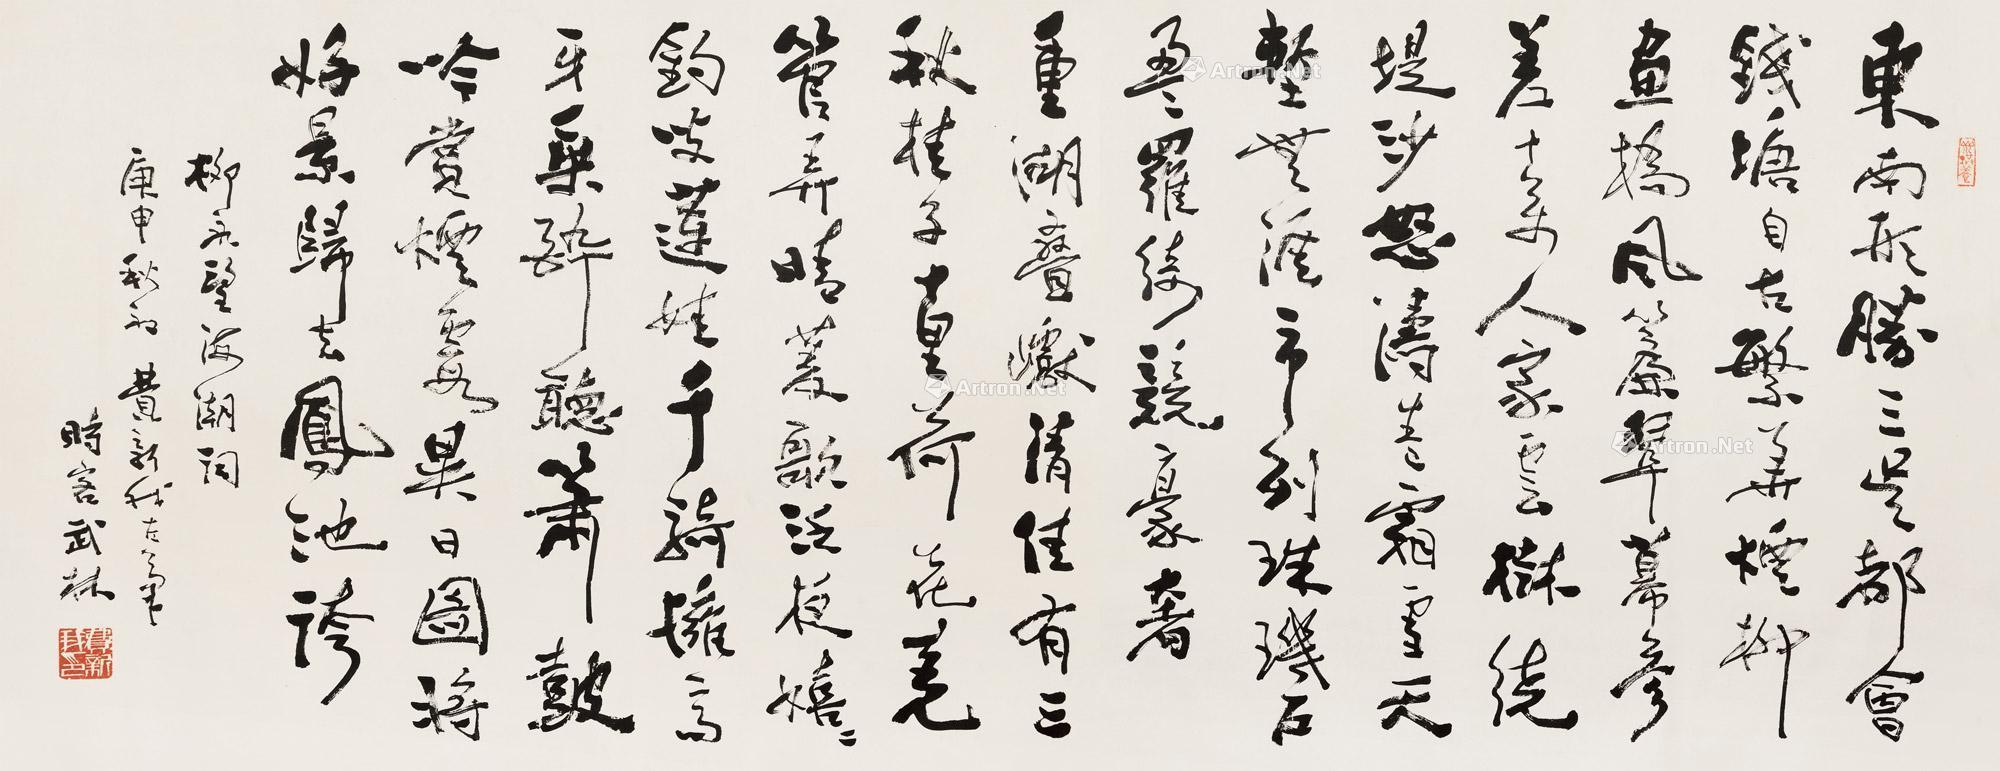 東南形勝三吳都會
錢塘自古繁華煙柳
畫橋風簾翠幕參
差十萬人家雲樹繞
堤沙怒濤卷霜雪天
塹無涯市列珠璣戶
盈〻羅綺競豪奢
重湖疊巘清佳有三
秋桂子十里荷花羌
管弄晴菱歌泛夜嬉〻
釣叟蓮娃千騎擁高
牙乘醉聽簫鼓
吟賞煙霞異日圖將
好景歸去鳳池誇
柳永望海潮詞
庚申秋初 費新我左筆
時客武林
費新我印
Artron.Net
Artron.Net
Artron.Net